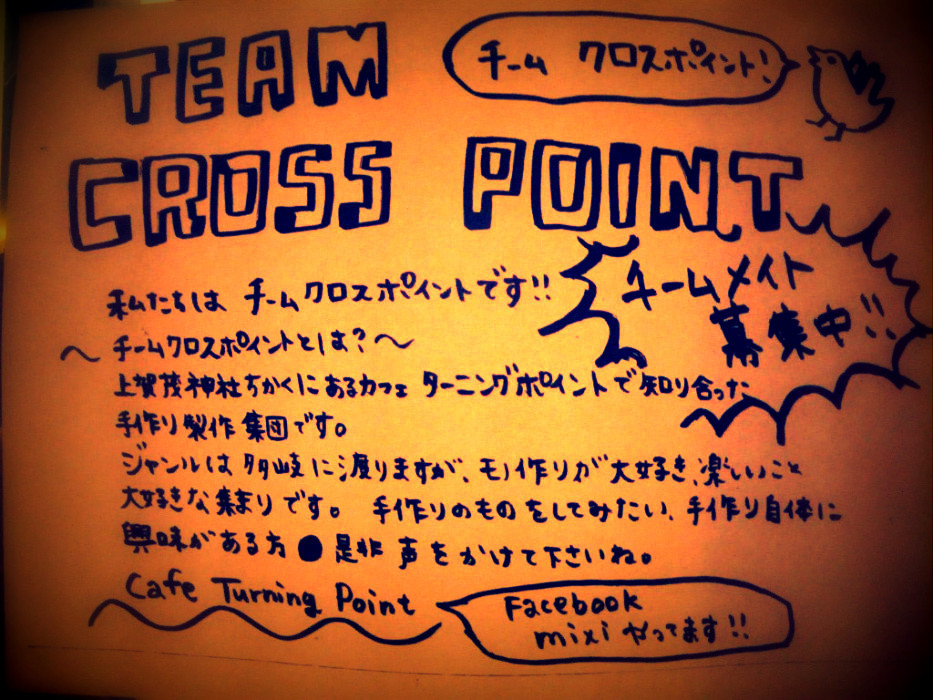 TEAM
チーム クロスポイント!
CROSS POINT
チームメイト
募集中!!
私たちは チームクロスポイントです!!
〜 チームクロスポイントとは?〜
上賀茂神社ちかくにあるカフェ ターニングポイントで知り合った
手作り製作集団です。
ジャンルは多岐に渡りますが、モノ作りが大好き、楽しいこと
大好きな集まりです。 手作りのものをしてみたい、手作り自体に
興味がある方 ● 是非 声をかけて下さいね。
Cafe Turning Point
Facebook
mixi やってます!!